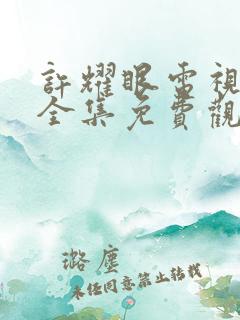 許耀眼電視
全集免費觀
潞塵
未經同意禁止轉載